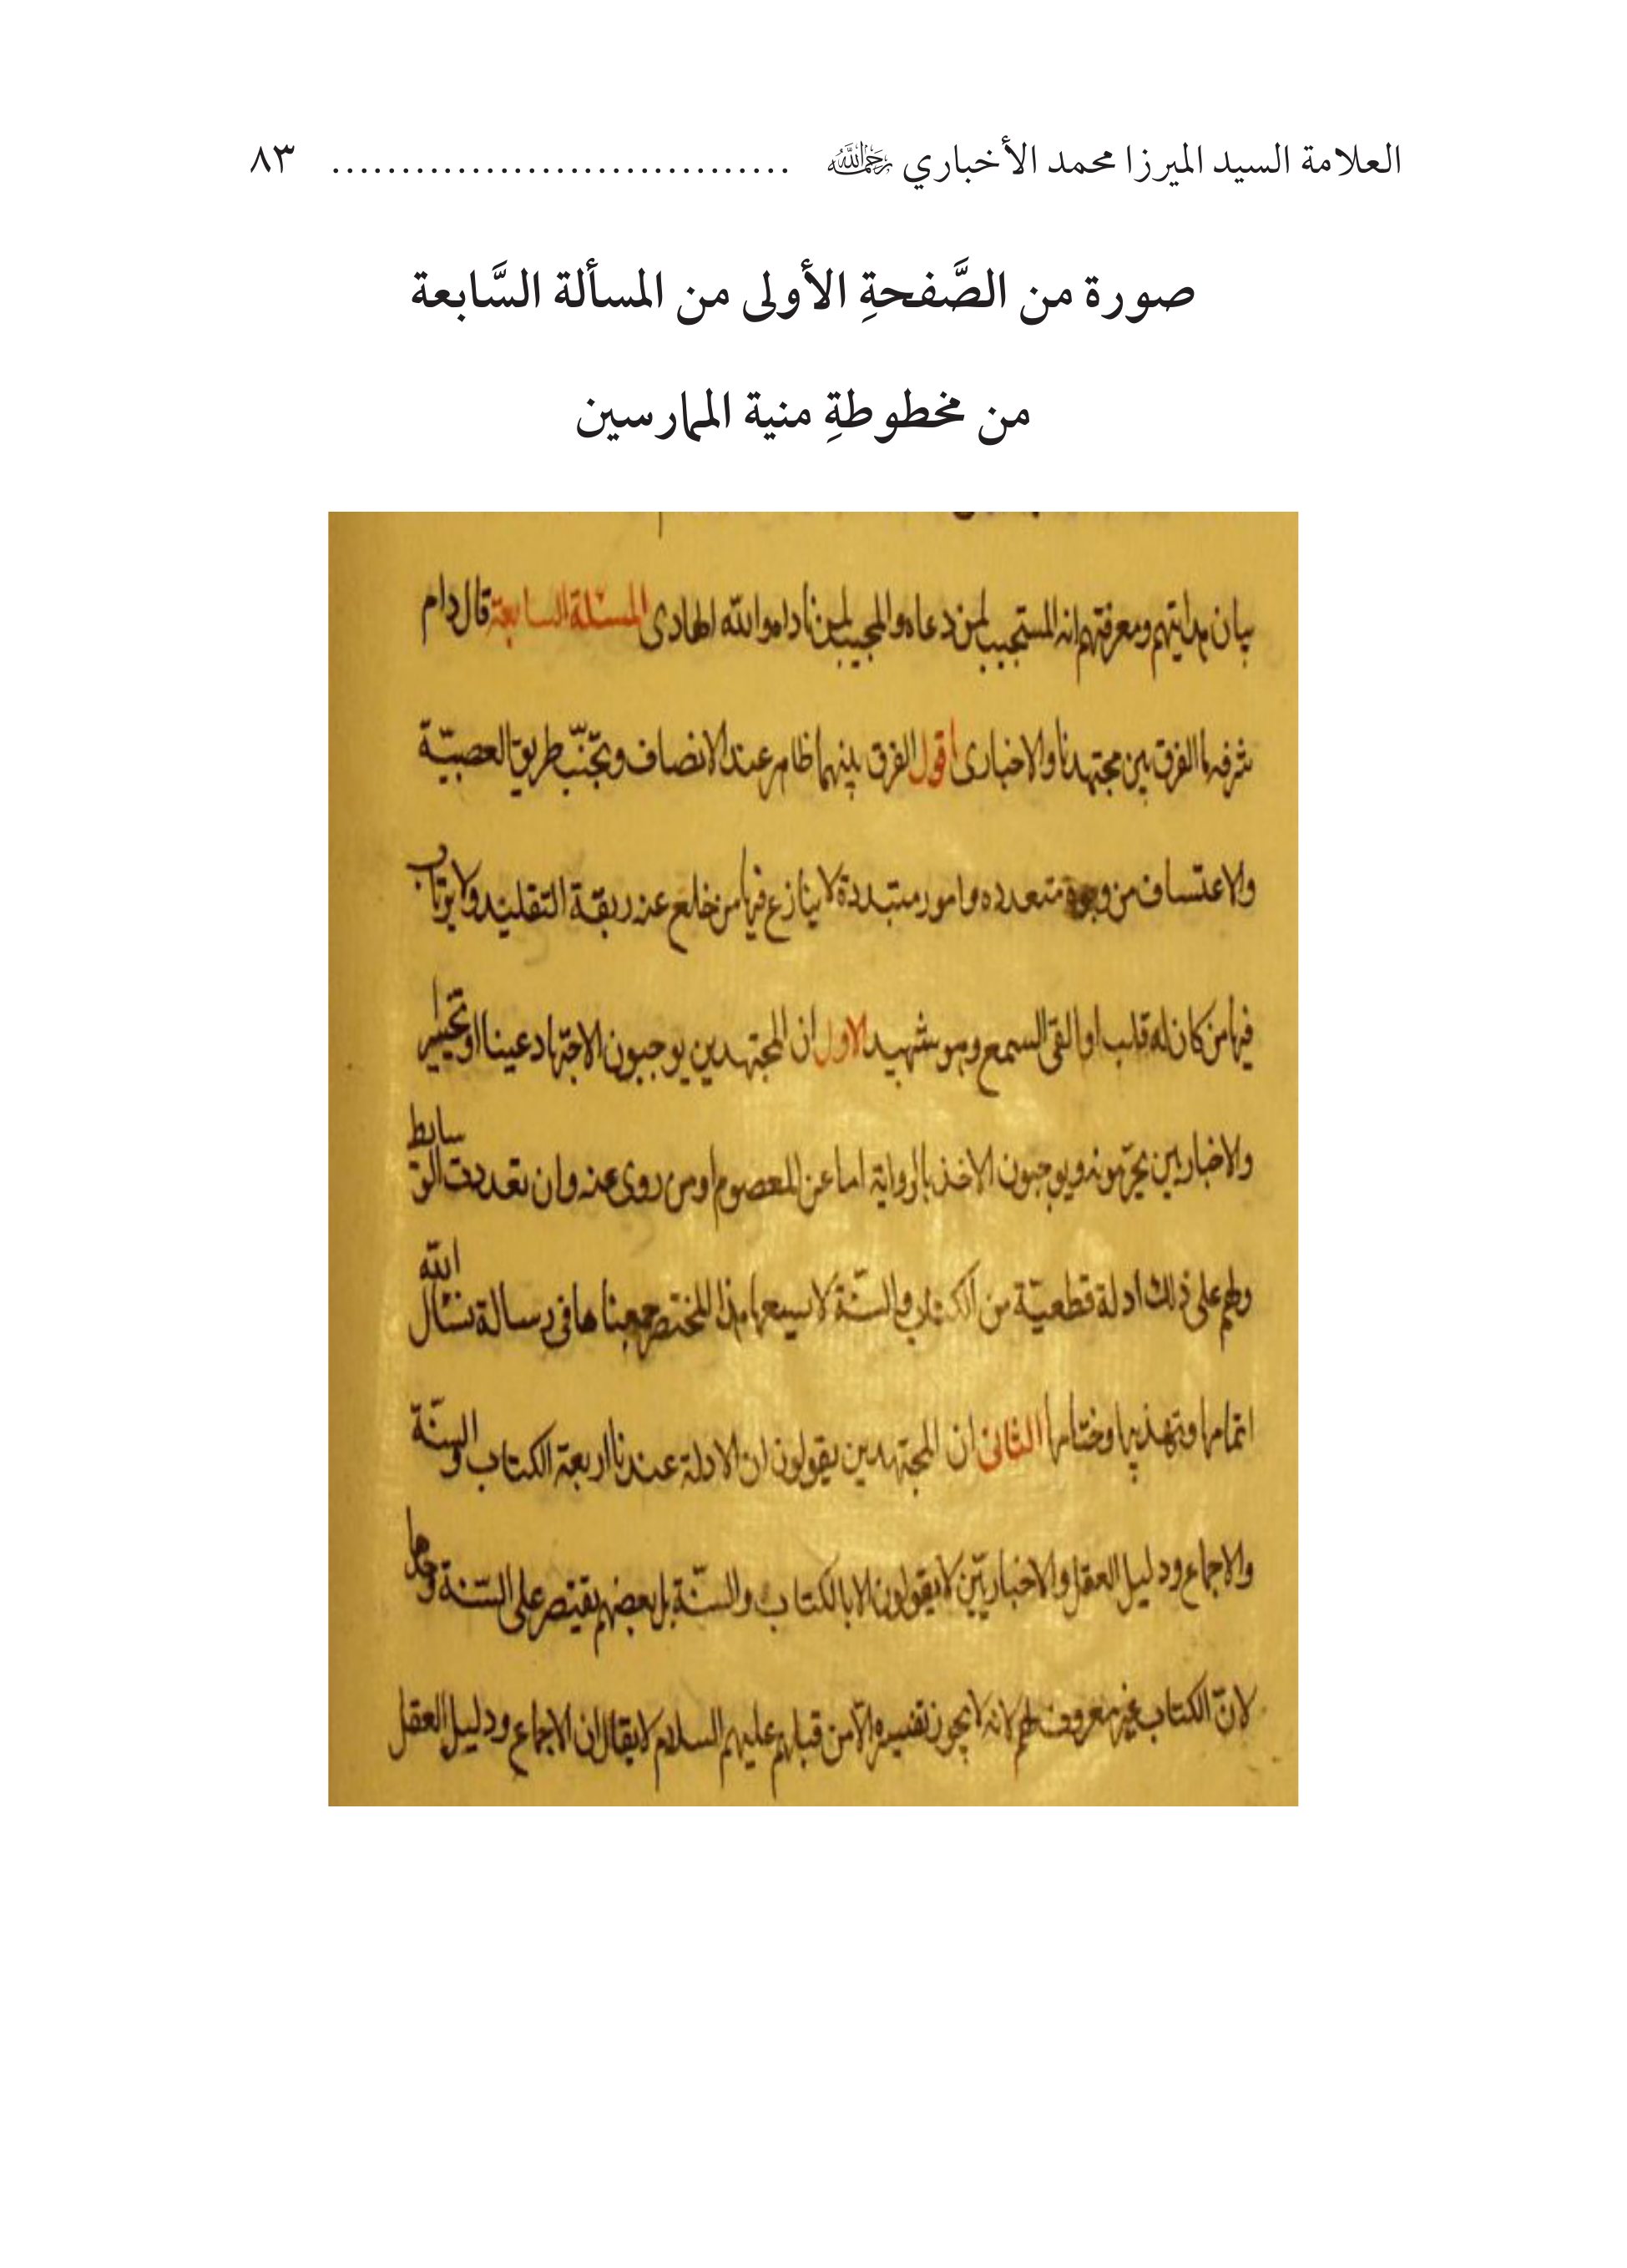 العلامة السيد الميرزا محمد الأخباري رحمه الله ................................. ٨٣
صورة من الصَّفحةِ الأولى من المسألة السَّابعة
من مخطوطةِ منية الممارسين
بيان هدايتهم ومعرفتهم انه المستجيب لمن دعاه والمجيب لمن ناداه والله الهادى المسئلة السابعة قال دام
شرفه ما الفرق بين مجتهدنا والاخبارى اقول الفرق بينهما ظاهر عند الانصاف وتجنّب طريق العصبيّة
والاعتساف من وجوه متعدده وامور متبددة لا ينازع فيها من خلع عنه ربقة التقليد ولا يرتاب
فيها من كان له قلب او القى السمع وهو شهيد الاول ان المجتهدين يوجبون الاجتهاد عينا او تخييرا
والاخباريين يحرّمونه ويوجبون الاخذ بالرواية اما عن المعصوم او من روى عنه وان تعددت الوسايط
ولهم على ذلك ادلة قطعيّة من الكتاب والسّنّة لا يسعها هذا المختصر جمعناها فى رسالة نسئال الله
اتمامها وتهذيبها وختامها الثانى ان المجتهدين يقولون ان الادلة عندنا اربعة الكتاب والسنّة
والاجماع ودليل العقل والاخباريّين لا يقولون الا بالكتاب والسّنّة بل بعضهم يقتصر على السّنة وحدها
لانّ الكتاب غير معروف لهم لانه لا يجوز تفسيره الّا من قبلهم عليهم السلام لا يقال ان الاجماع ودليل العقل